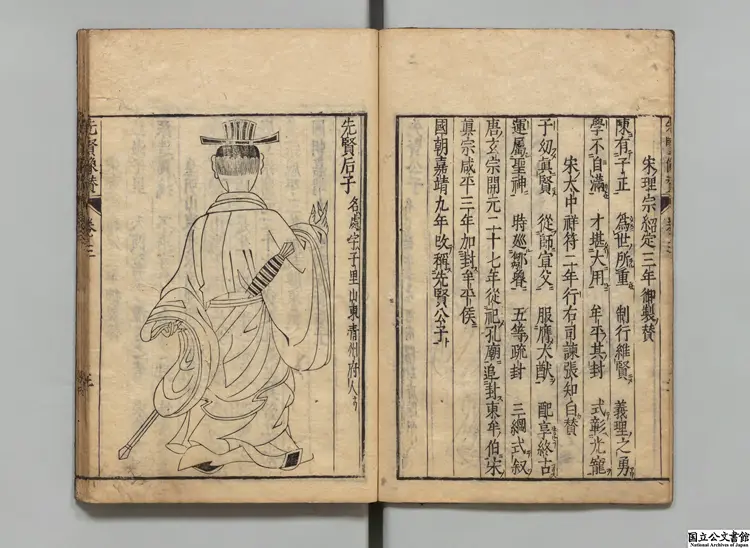 宋理宗紹定三年御製賛
陳有子正 為世所重 制行維賢 義理之勇
學不自滿 才堪大用 牟平其封 式彰光寵
宋太中祥符二年行右司諫張知白賛
子幼真賢 從師宣父 服膺大猷 配享終古
運屬聖神 時巡鄒魯 五等疏封 三綱式叙
唐玄宗開元二十七年從祀孔廟追封東牟伯宋
眞宗咸平三年加封牟平侯
國朝嘉靖九年改稱先賢公子
先賢后子 名處字子里山東青州府人
先賢像賛 巻之三
国立公文書館
National Archives of Japan